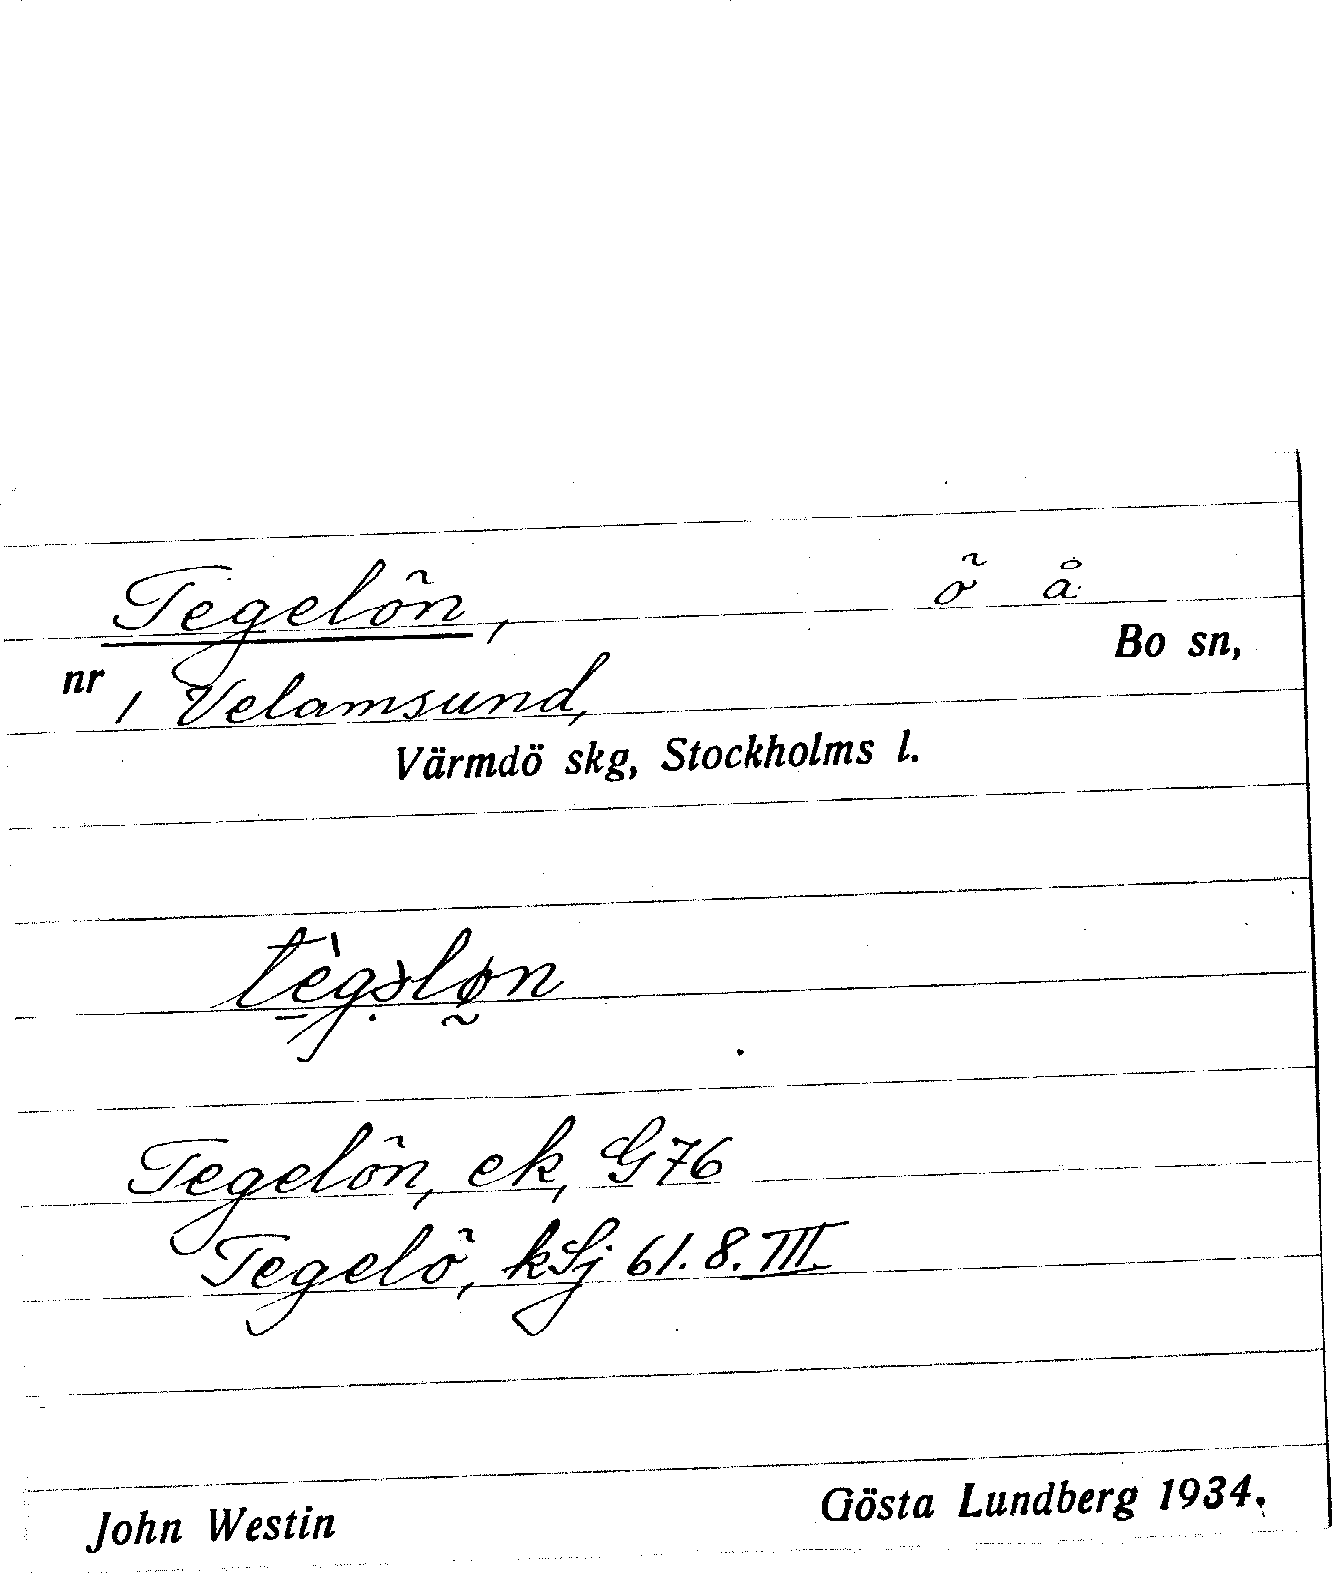 Tegelön, ö å
Bo sn,
nr 1 Velamsund,
Värmdö skg, Stockholms l.
Tegelön, ek, G 76
Tegelö, k Sj 61. 8. III.
John Westin Gösta Lundberg 1934.